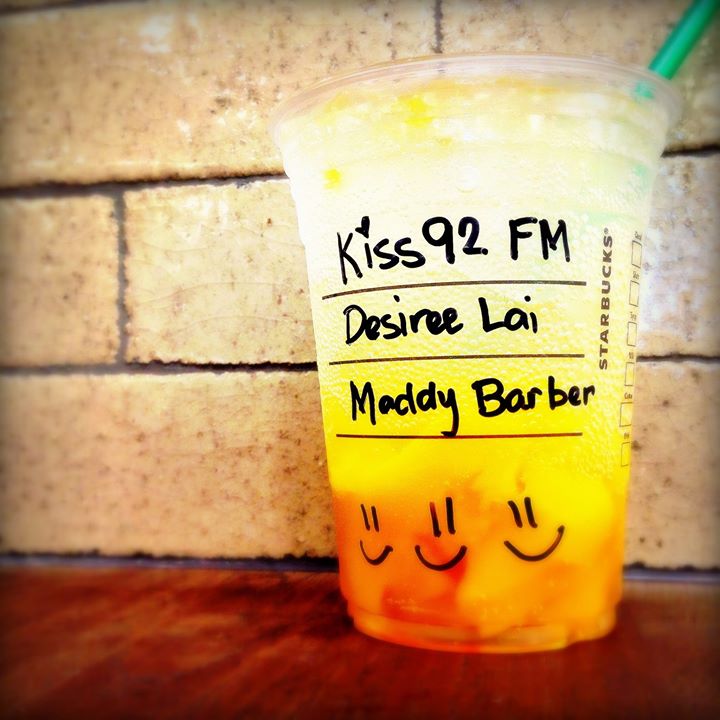 Kiss92 FM
Desiree Lai
Maddy Barber
STARBUCKS®